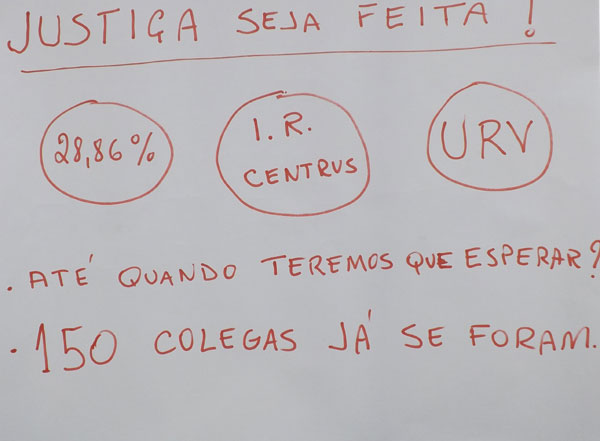 JUSTIÇA SEJA FEITA !
28,86%
I. R.
CENTRUS
URV
. ATÉ QUANDO TEREMOS QUE ESPERAR?
. 150 COLEGAS JÁ SE FORAM.